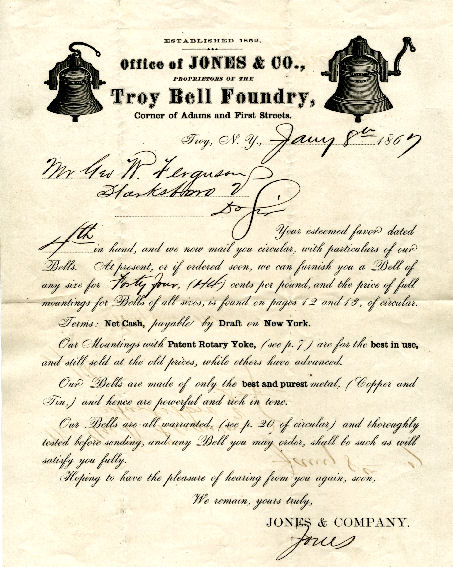 ESTABLISHED 1852.
Office of JONES & CO.,
PROPRIETORS OF THE
Troy Bell Foundry,
Corner of Adams and First Streets.
Troy, N. Y., Jany 8th 1867
Mr Geo W. Ferguson
Starksboro V
Dr Sir
Your esteemed favor dated
4th in hand, and we now mail you circular, with particulars of our
Bells. At present, or if ordered soon, we can furnish you a Bell of
any size for Forty four, (44) cents per pound, and the price of full
mountings for Bells of all sizes, is found on pages 12 and 13, of circular.
Terms: Net Cash, payable by Draft on New York.
Our Mountings with Patent Rotary Yoke, (see p. 7) are for the best in use,
and still sold at the old prices, while others have advanced.
Our Bells are made of only the best and purest metal, (Copper and
Tin,) and hence are powerful and rich in tone.
Our Bells are all warranted, (see p. 20 of circular) and thoroughly
tested before sending, and any Bell you may order, shall be such as will
satisfy you fully.
Hoping to have the pleasure of hearing from you again, soon,
We remain, yours truly,
JONES & COMPANY.
Jones